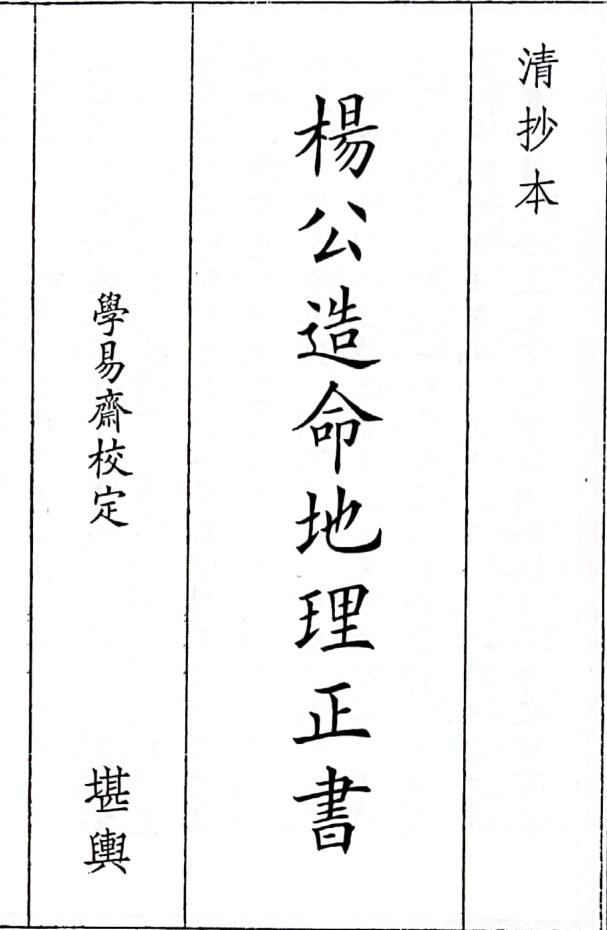 清抄本
楊公造命地理正書
學易齋校定
堪輿